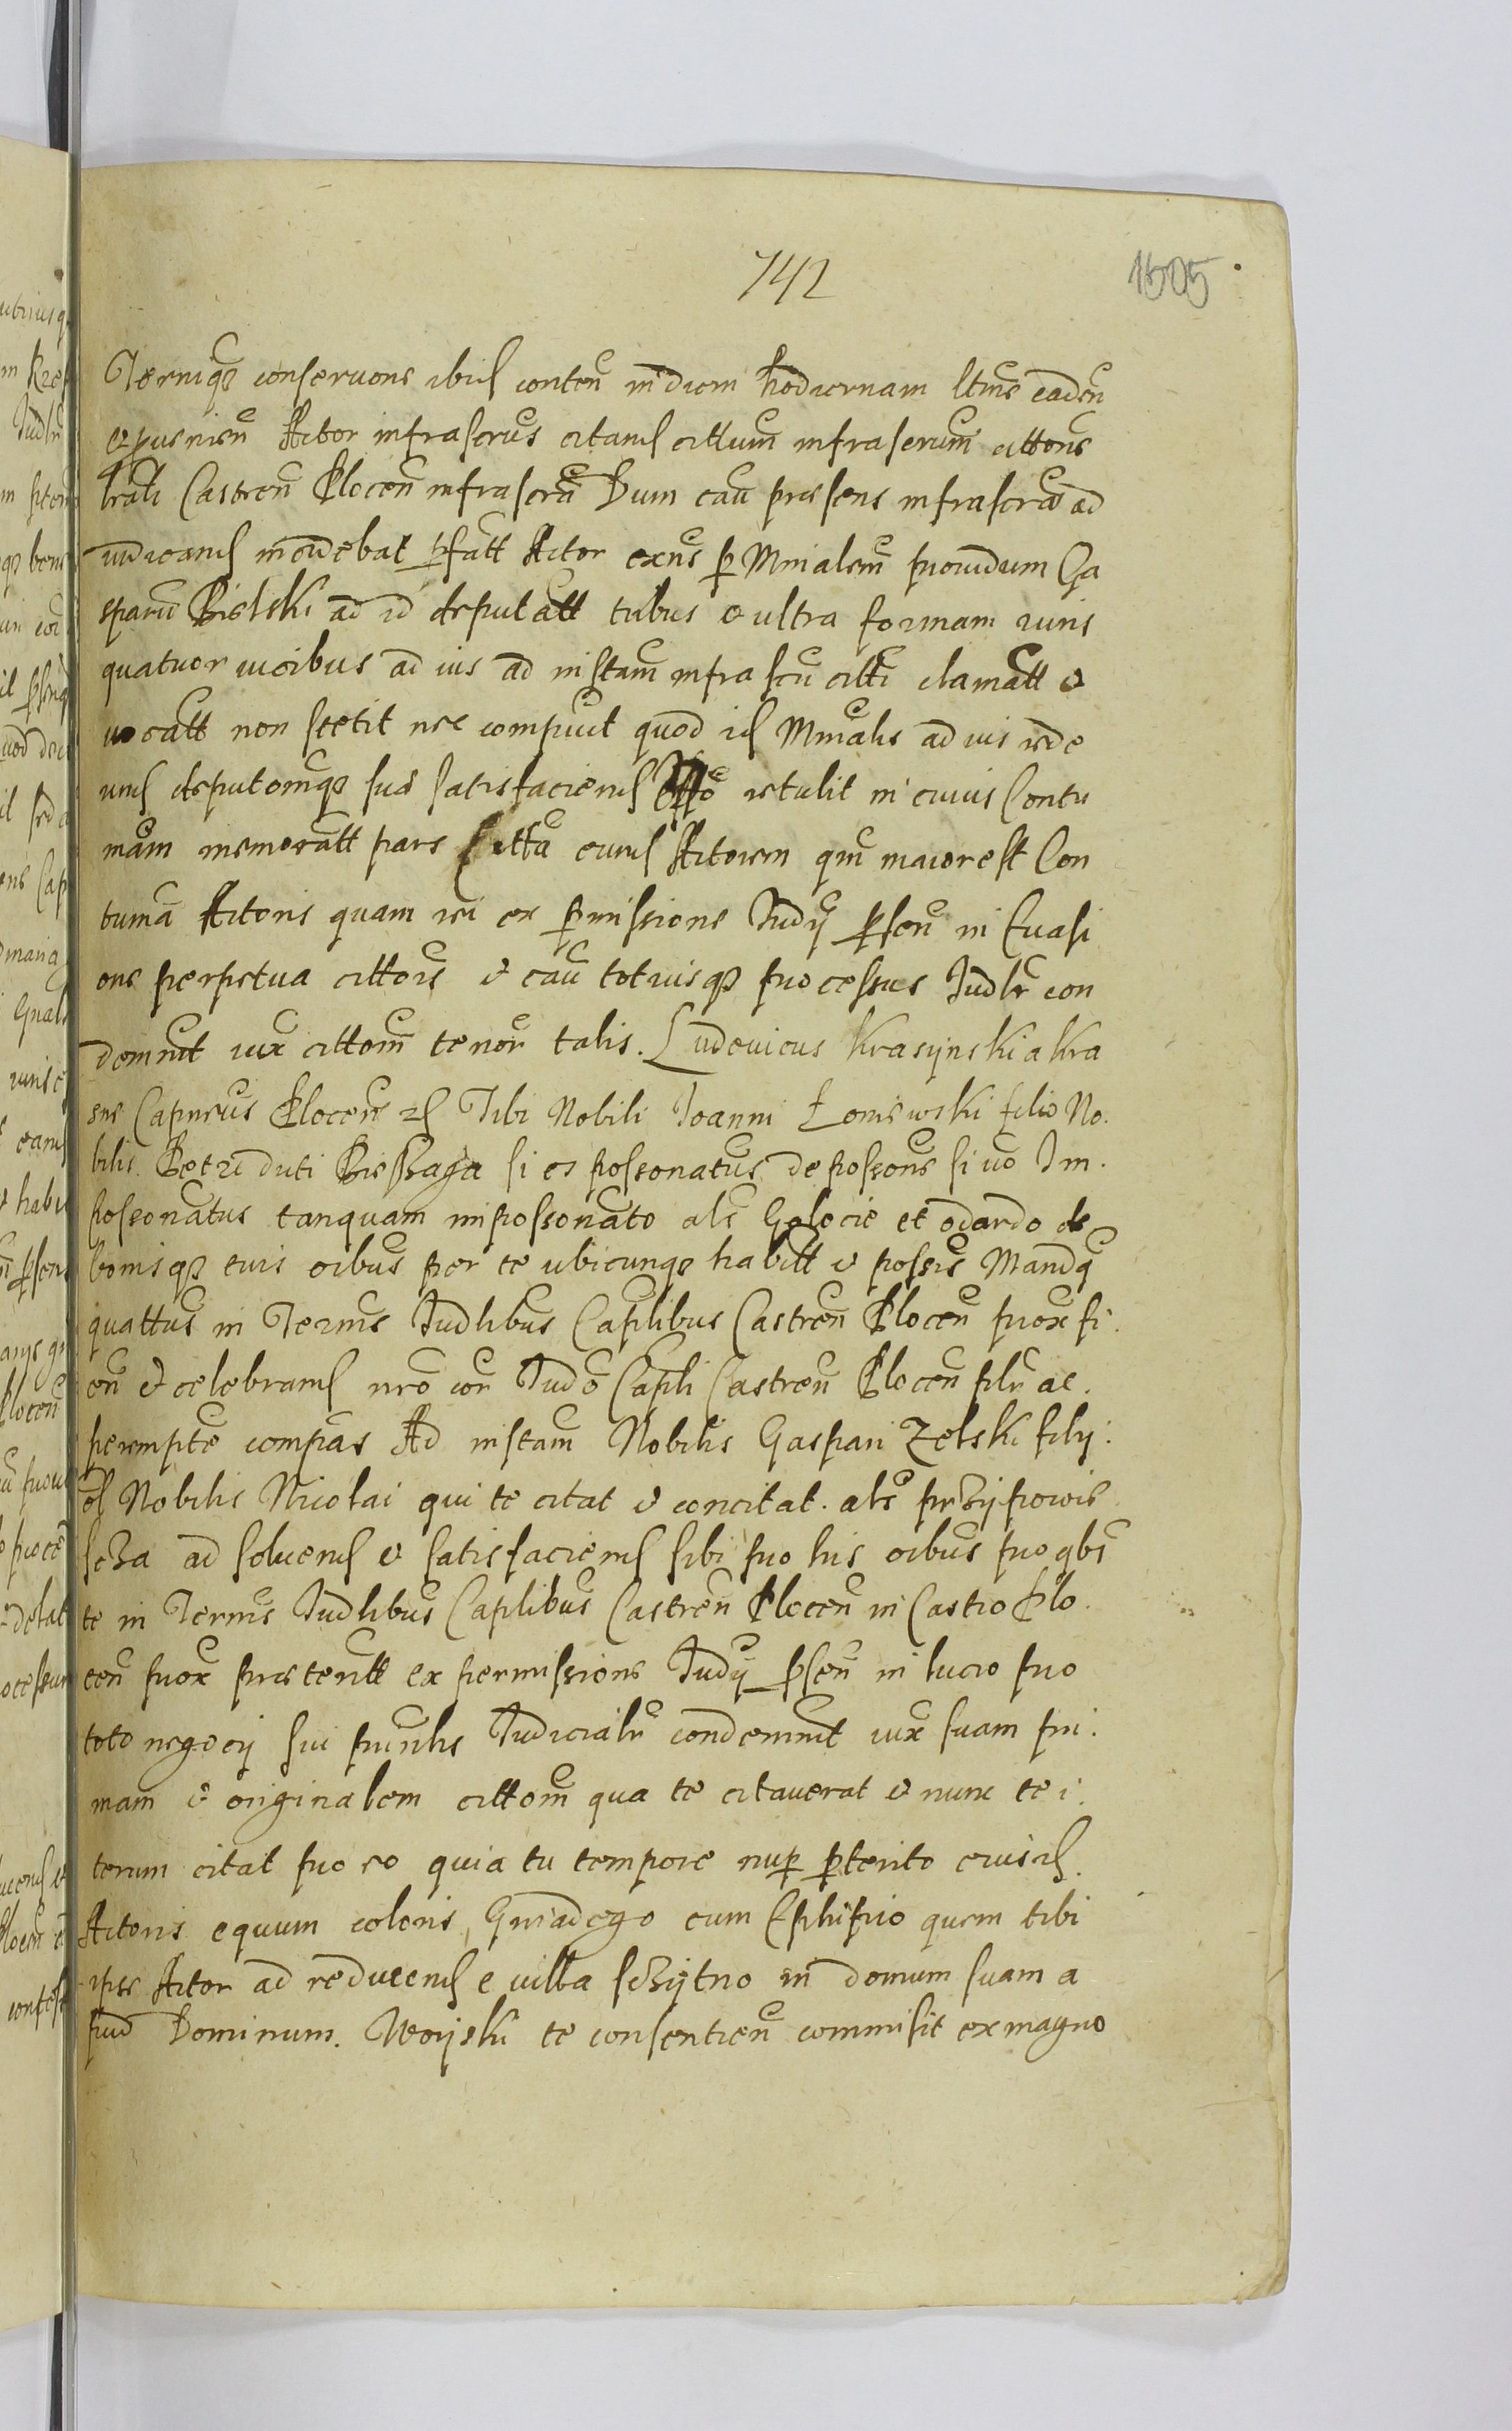 742
1505
Terniqz conseruone ibid conten in diem hodiernam ltme eaden
et puenien Actor infrascrus citand cittum infrascrum cittone
lrali Castren Plocen infrascra Dum cau præsens infrascra ad
iudicand incidebat pfatt Actor exns p Mnialem prouidum Ca
sparu Bielski ad id deputatt tribus et ultra formam iuris
quatuor uicibus ad ius ad instam infrascri citti clamatt et
uocatt non stetit nec compuit quod id Mnialis ad ius rede
und deputomqz sua satisfaciend Offo retulit in cuius Contu
mam memoratt pars Citta eund Actorem qm maior est Con
tuma Actoris quam rei ex pmissione Judij psen in Euasi
one perpetua cittois et cau totiusqz processus Judlr con
demnit iux cittom tenor talis. Ludouicus Krasynski a Kra
sne Capneus Plocen zd Tibi Nobili Joanni Łoniewski filio No.
bilis Petri duti Biesaga si es possonatus de possone si uo Im.
possonatus tanquam impossonato als Golocie et odardo de
bonisqz tuis oibus per te ubicunqz habitt et possis Mandq
quattus in Termis Judlibus Caplibus Castren Plocen prox fi.
en et celebrand nro con Judo Capli Castren Plocen plr ac.
peremptē compas Ad instam Nobilis Gaspari Zelski filij.
ol Nobilis Nicolai qui te citat et concitat. als przypowie
scza ad soluend et satisfaciend sibi pro his oibus pro qbs
te in Termis Judlibus Caplibus Castren Plocen in Castro Plo.
cen prox præteritt ex permissione Judij psen in lucro pro
toto negocij sui prinlis Judicialr condemnit iux suam pri.
mam et originalem cittom qua te citauerat et nunc te i.
terum citat pro eo quia tu tempore nup pterito eiusd.
Actoris equum coloris Gniadego cum Ephipio quem tibi
ipse Actor ad reducend e uilla sczijtno in domum suam a
pud Dominum. Woijski te consentien commisit ex magno